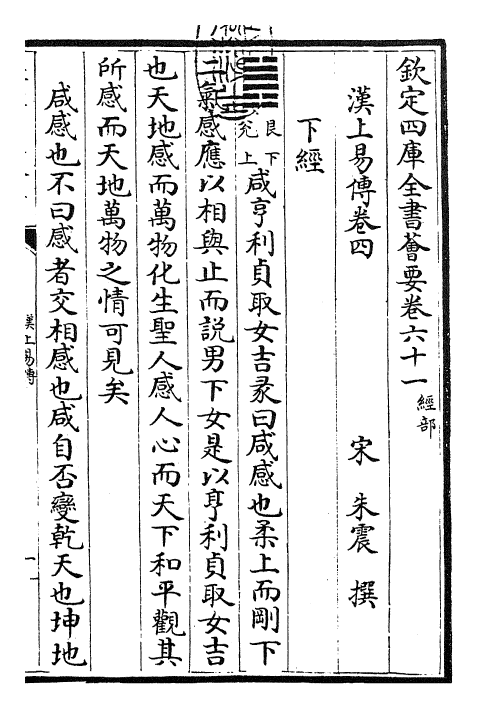 欽定四庫全書薈要卷六十一經部
漢上易傳卷四 宋 朱震 撰
下經
艮下兌上咸亨利貞取女吉彖曰咸感也柔上而剛下
二氣感應以相與止而説男下女是以亨利貞取女吉
也天地感而萬物化生聖人感人心而天下和平觀其
所感而天地萬物之情可見矣
咸感也不曰感者交相感也咸自否變乾天也坤地
漢上易傳
一